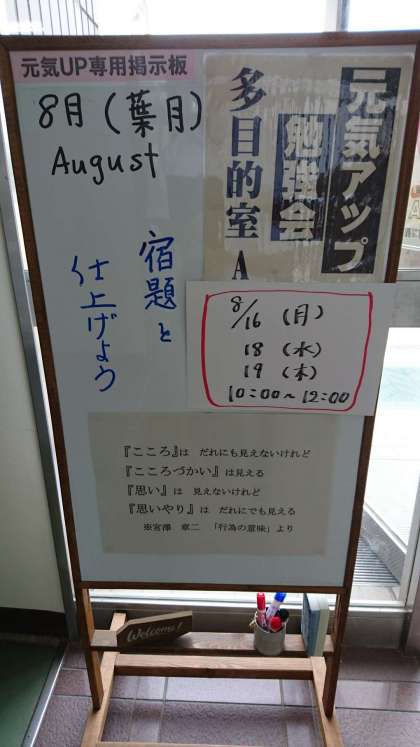 元気UP専用掲示板
8月(葉月)
August
元気アップ
勉強会
多目的室 A
宿題と
仕上げよう
8/16 (月)
18 (水)
19 (木)
10:00~12:00
『こころ』は だれにも見えないけれど
『こころづかい』は見える
『思い』は 見えないけれど
『思いやり』は だれにでも見える
※宮澤 章二 「行為の意味」より
Welcome!